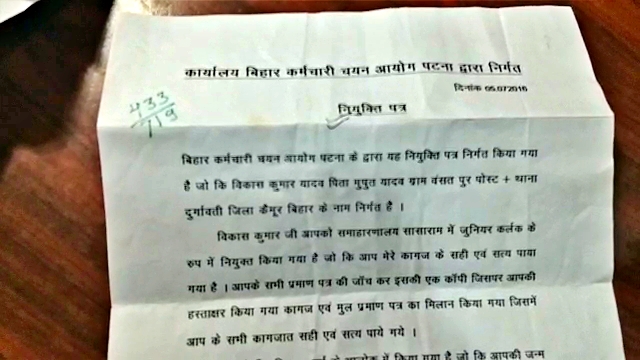 कार्यालय बिहार कर्मचारी चयन आयोग पटना द्वारा निर्गत
दिनांक 05.072016
433
719
नियुक्ति पत्र
बिहार कर्मचारी चयन आयोग पटना के द्वारा यह नियुक्ति पत्र निर्गत किया गया
है जो कि विकास कुमार यादव पिता गुपुत यादव ग्राम वंसत पुर पोस्ट + थाना
दुर्गावती जिला कैमूर बिहार के नाम निर्गत है ।
विकास कुमार जी आपको समाहारणालय सासाराम में जुनियर कर्लक के
रुप में नियुक्त किया गया है जो कि आप मेरे कागज के सही एवं सत्य पाया
गया है । आपके सभी प्रमाण पत्र की जाँच कर इसकी एक कॉपी जिसपर आपकी
हस्ताक्षर किया गया कागज एवं मुल प्रमाण पत्र का मिलान किया गया जिसमें
आप के सभी कागजात सही एवं सत्य पाये गये ।
में किया गया है जो कि आपकी जन्म